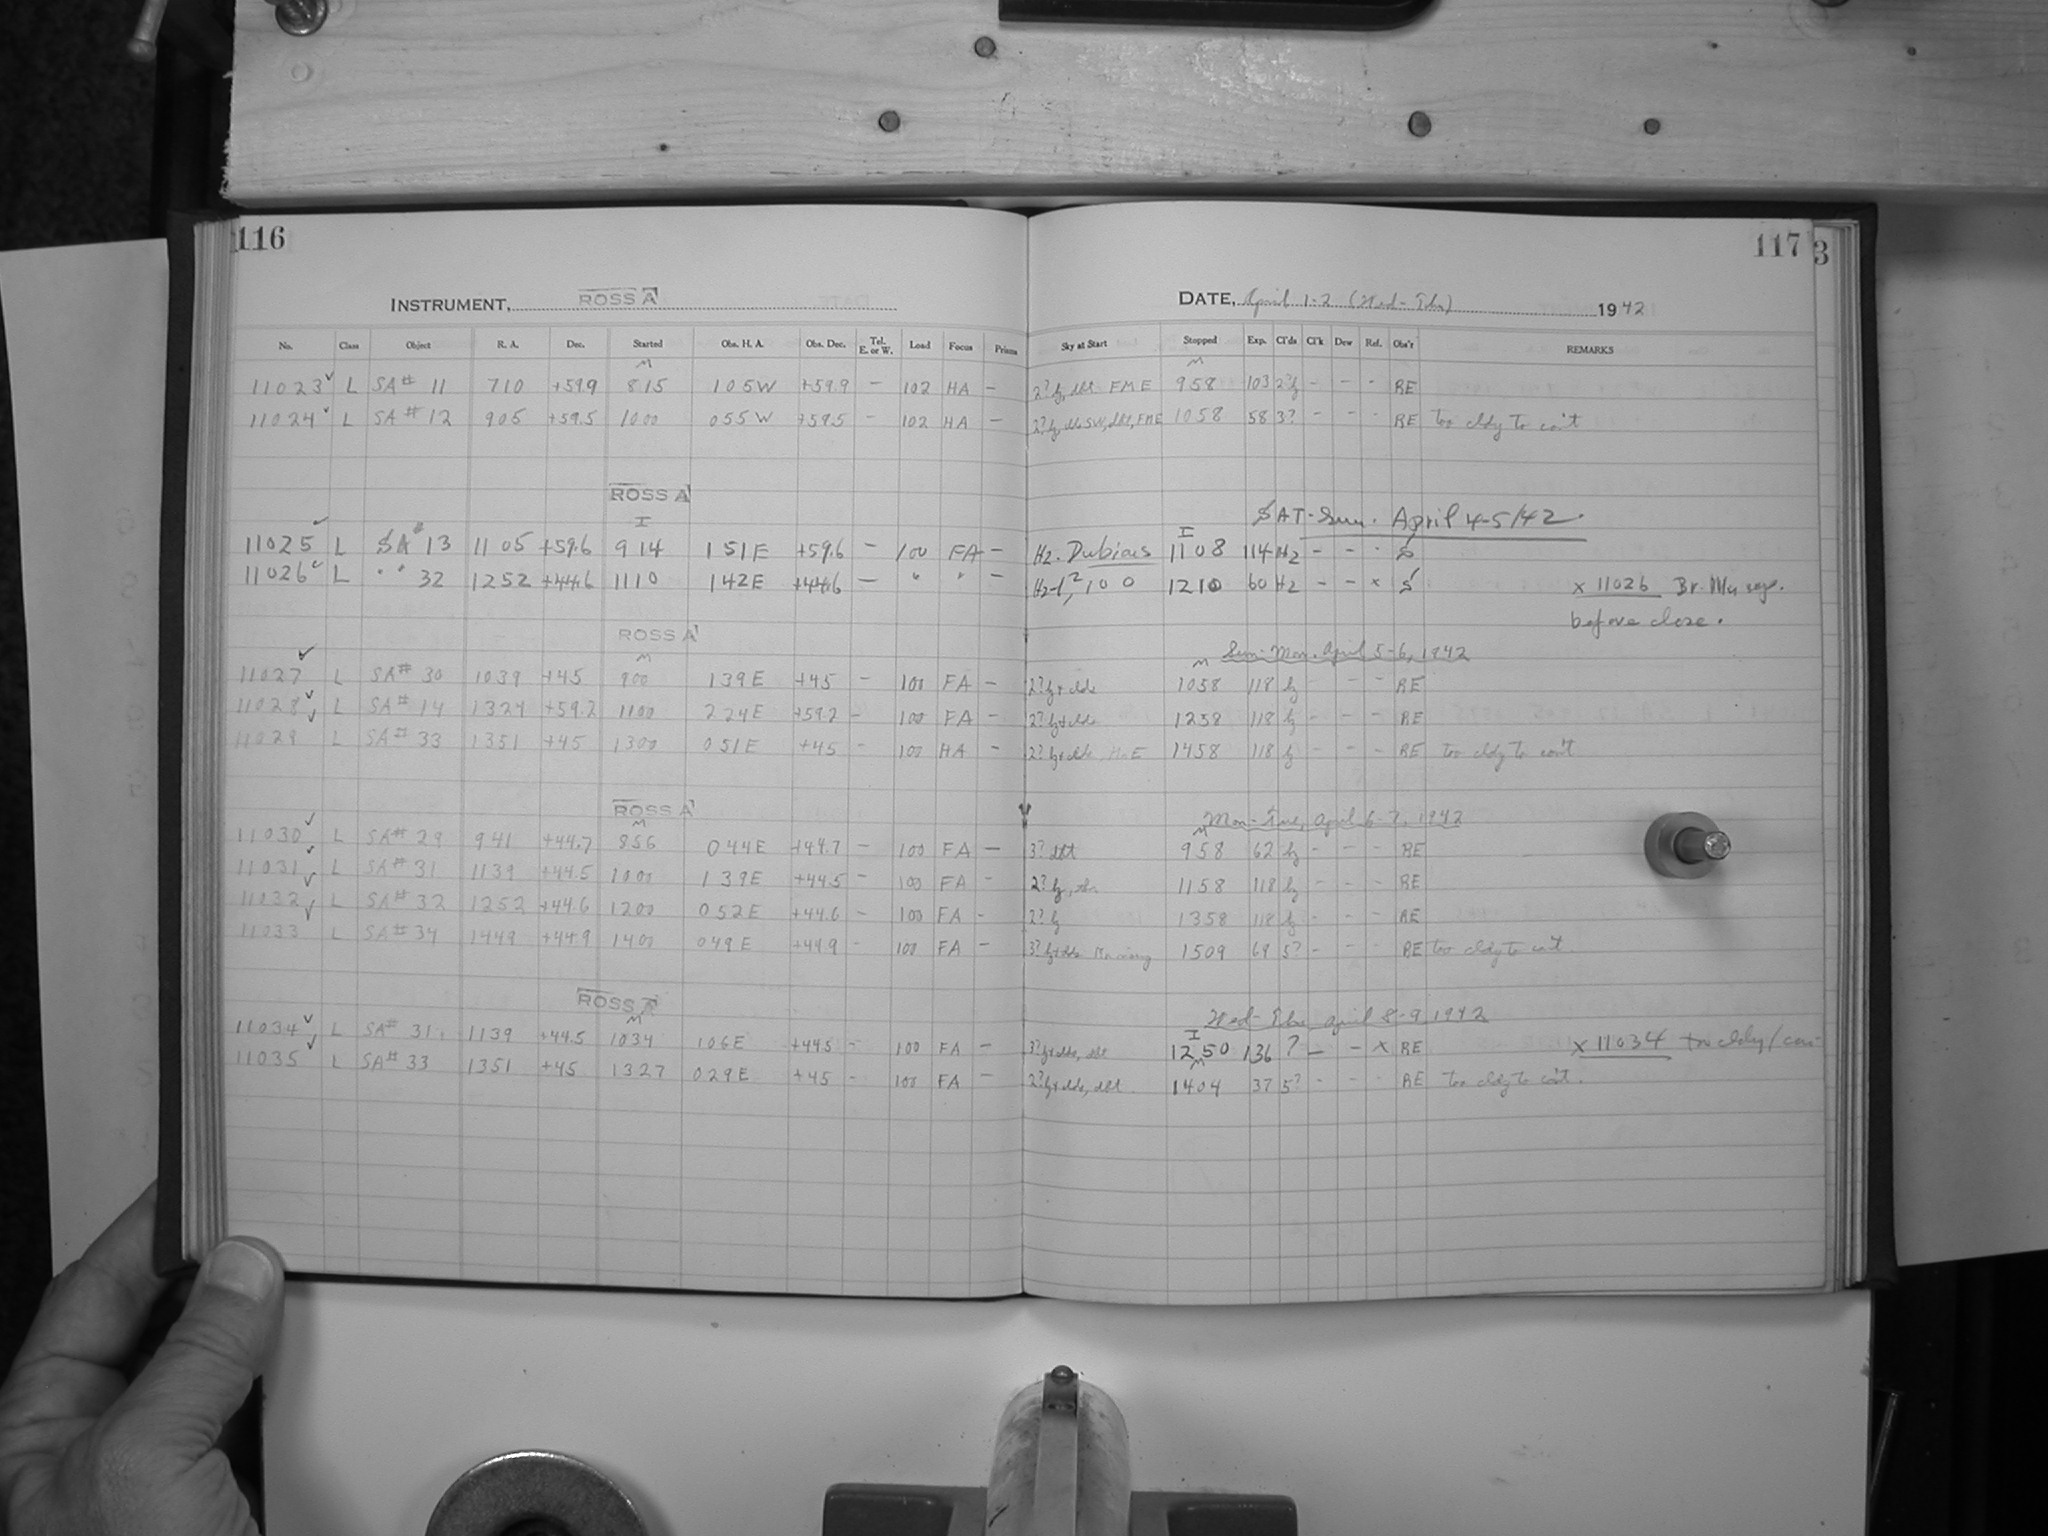 116
117
3
INSTRUMENT, ROSS A
DATE, April 1-2 (Wed-Thr) 1942
No. Class Object R. A. Dec. Started Obs. H. A. Obs. Dec. Tel. E. or W. Load Focus Prisms Sky at Start Stopped Exp. Cl'ds Cl'k Dew Ref. Obs'r REMARKS
M M
11023 ✓ L SA# 11 710 +59.9 815 105W +59.9 - 102 HA - 2? hz, dkt FME 958 103 2?hz - - - RE
11024 ✓ L SA# 12 905 +59.5 1000 055W +59.5 - 102 HA - 2? hz, SW, dkt, FME 1058 58 3? - - - RE too cldy to con't
ROSS A
SAT-Sun. April 4-5/42.
I I
11025 ✓ L SA# 13 1105 +59.6 914 151E +59.6 - 100 FA - Hz. Dubious 1108 114 Hz - - - S
11026 ✓ L " " 32 1252 +44.6 1110 142E +44.6 - " " - Hz-1,? 100 1210 60 Hz - - x S x 11026 Br.
before close.
ROSS A
Sun-Mon. April 5-6, 1942
M M
11027 ✓ L SA# 30 1039 +45 900 139E +45 - 100 FA - 2? hz+clds 1058 118 hz - - - RE
11028 ✓ L SA# 14 1324 +59.2 1100 224E +59.2 - 100 FA - 2? hz+clds 1258 118 hz - - - RE
11029 ✓ L SA# 33 1351 +45 1300 051E +45 - 100 HA - 2? hz+clds, E 1458 118 hz - - - RE too cldy to con't
ROSS A
Mon-Tue, April 6-7, 1942
M M
11030 ✓ L SA# 29 941 +44.7 856 044E +44.7 - 100 FA - 3? dkt 958 62 hz - - - RE
11031 ✓ L SA# 31 1139 +44.5 1000 139E +44.5 - 100 FA - 2? hz, 1158 118 hz - - - RE
11032 ✓ L SA# 32 1252 +44.6 1200 052E +44.6 - 100 FA - 2? hz 1358 118 hz - - - RE
11033 ✓ L SA# 34 1449 +44.9 1400 049E +44.9 - 100 FA - 3? hz+clds Mn rising 1509 69 5? - - - RE too cldy to con't
ROSS A
Wed-Thr, April 8-9 1942
M I
11034 ✓ L SA# 31 1139 +44.5 1034 106E +44.5 - 100 FA - 3? hz+clds, dkt 1250 136 ? - - x RE x 11034 too cldy/con-
M
11035 ✓ L SA# 33 1351 +45 1327 029E +45 - 100 FA - 2? hz+clds, dkt 1404 37 5? - - - RE too cldy to con't.